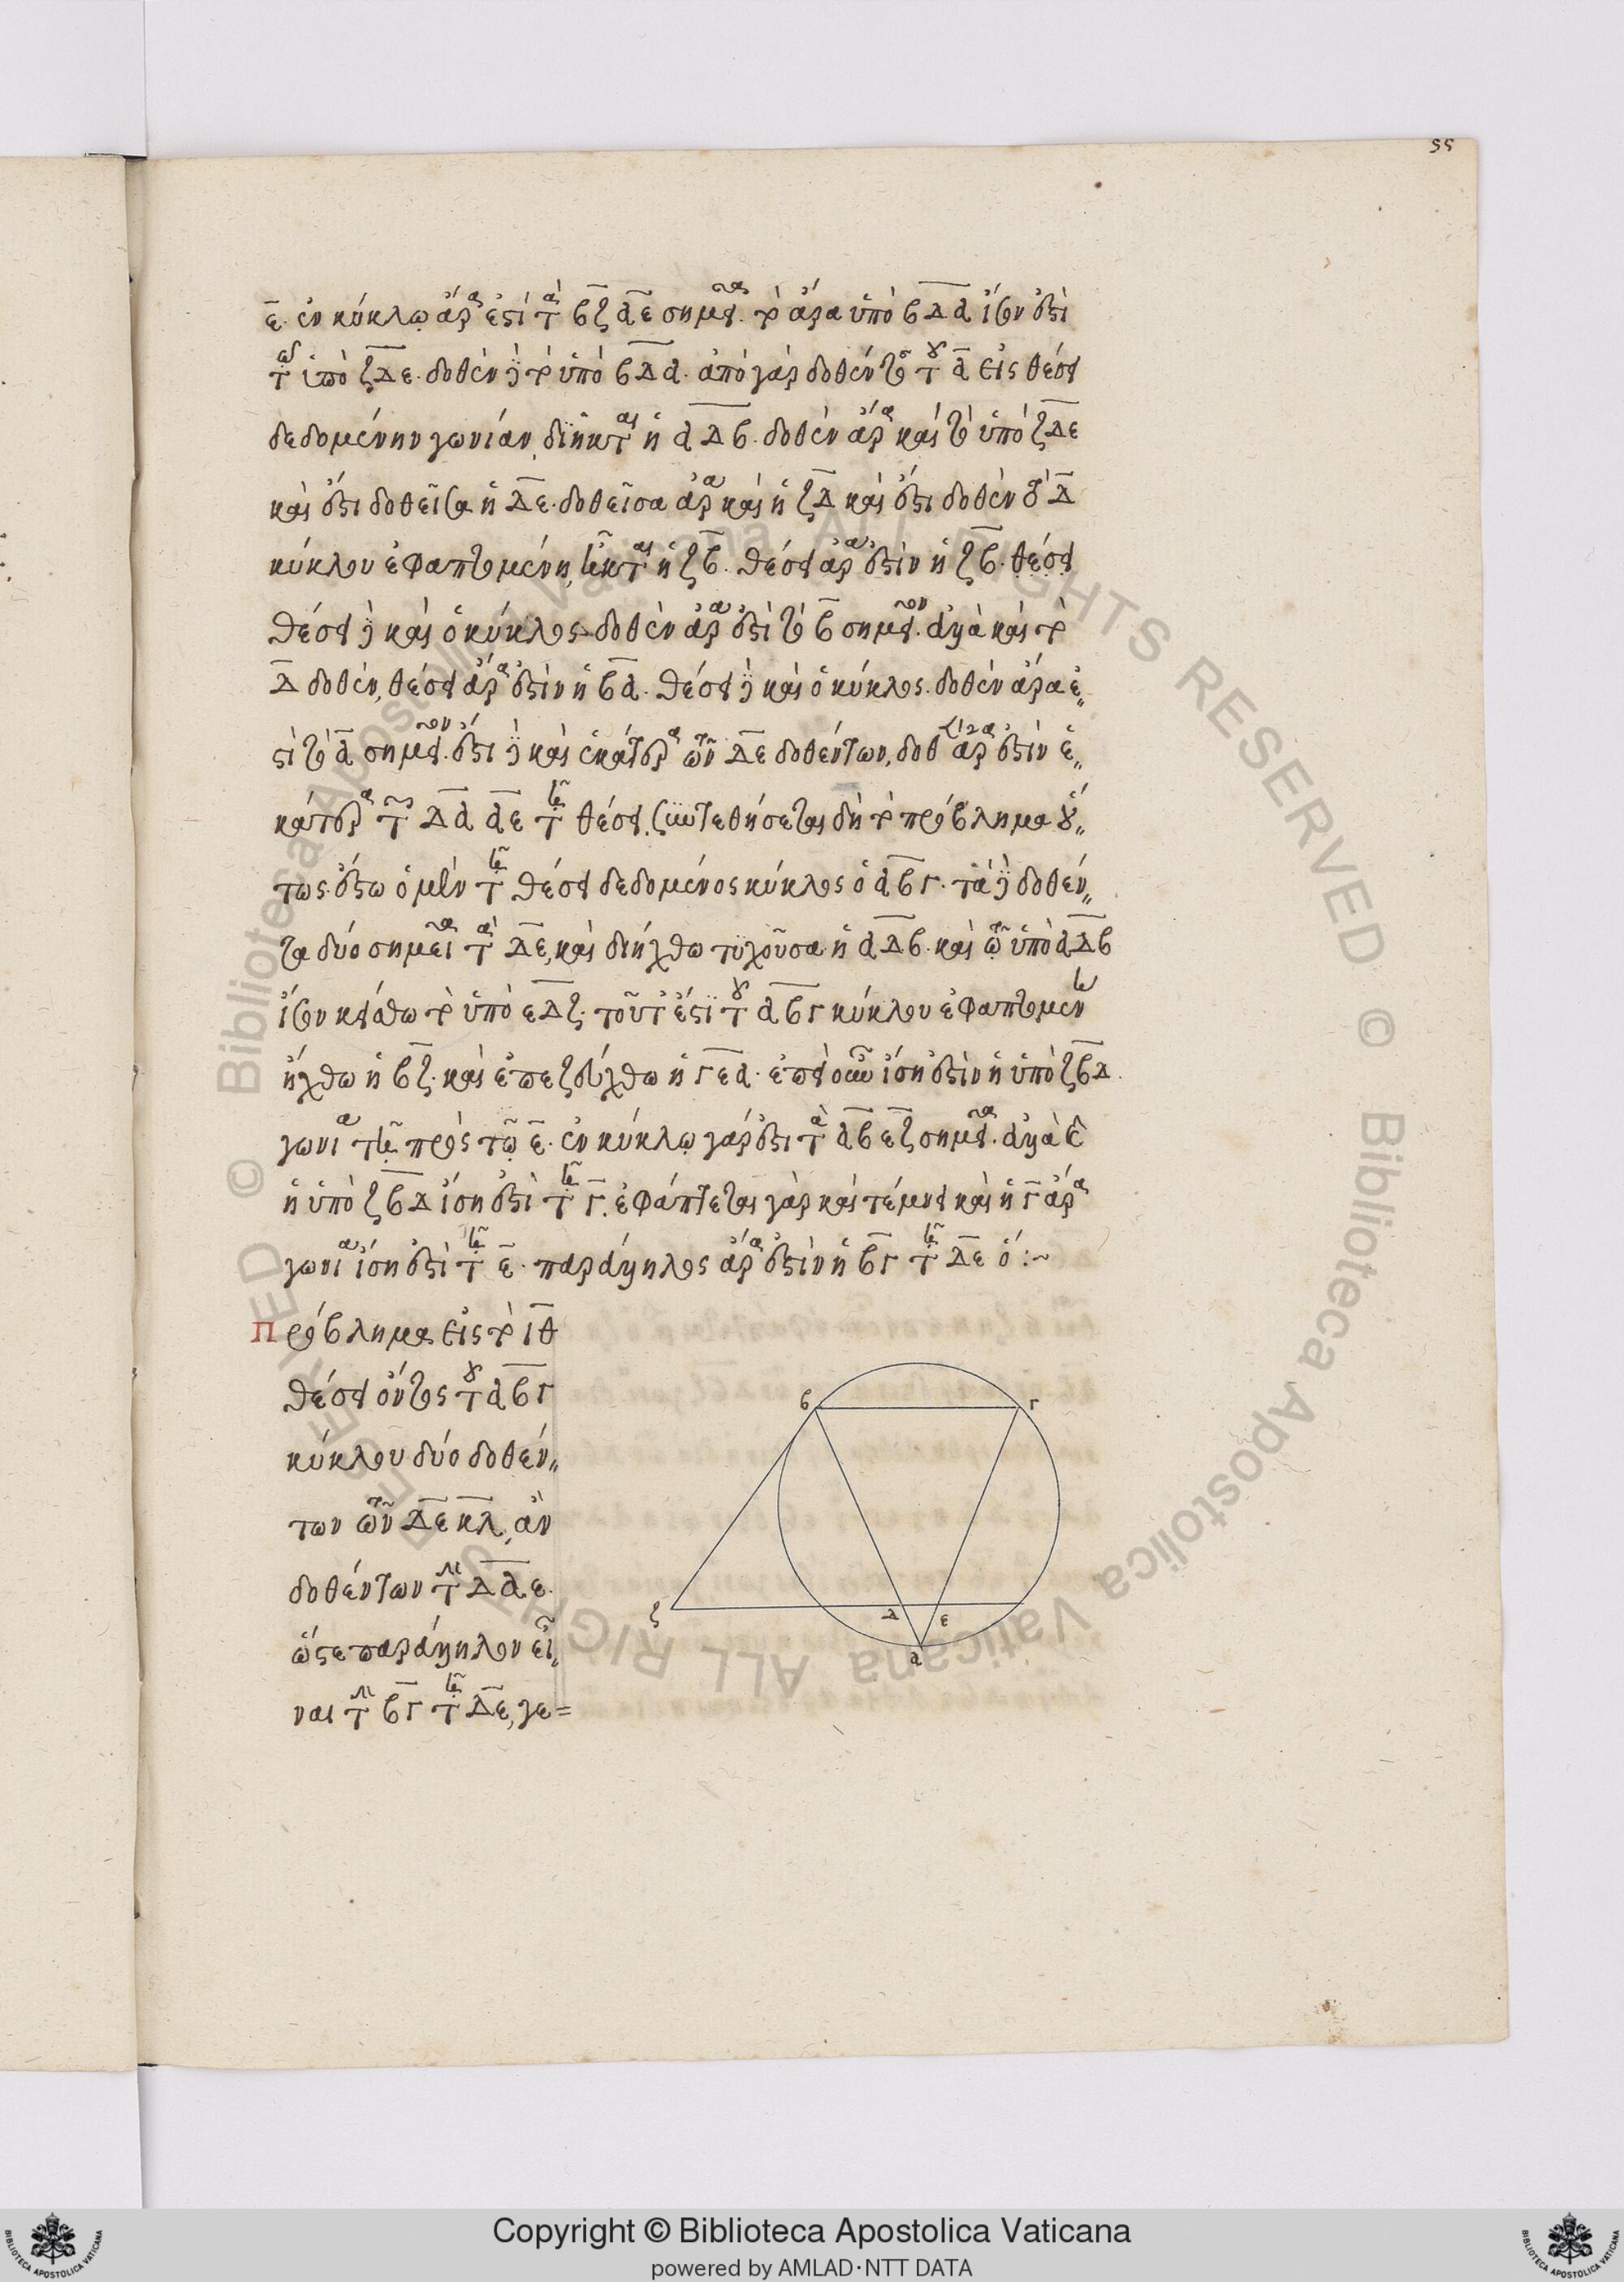 55
ε̅. ἐν κύκλῳ ἄρα ἐστὶ τὰ β̅ζ̅ α̅ε̅ σημεῖα. τὸ ἄρα ὑπὸ β̅δ̅α̅ ἴσον ἐστὶ
τῷ ὑπὸ ζ̅δ̅ε̅. δοθὲν δὲ τὸ ὑπὸ β̅δ̅α̅. ἀπὸ γὰρ δοθέντος τοῦ α̅ εἰς θέσει
δεδομένην γωνίαν, διῆκται ἡ α̅δ̅β̅. δοθὲν ἄρα καὶ τὸ ὑπὸ ζ̅δ̅ε̅
καὶ ἔστι δοθεῖσα ἡ δ̅ε̅. δοθεῖσα ἄρα καὶ ἡ ζ̅δ̅ καὶ ἔστι δοθὲν τὸ δ̅
κύκλου ἐφαπτομένη, ἦκται ἡ ζ̅β̅. θέσει ἄρα ἐστὶν ἡ ζ̅β̅. θέσει
θέσει δὲ καὶ ὁ κύκλος δοθὲν ἄρα ἐστὶ τὸ β̅ σημεῖον. ἀλλὰ καὶ τὸ
δ̅ δοθέν, θέσει ἄρα ἐστὶν ἡ β̅α̅. θέσει δὲ καὶ ὁ κύκλος. δοθὲν ἄρα ἐ„
στὶ τὸ α̅ σημεῖον. ἔστι δὲ καὶ ἑκάτερα τῶν δ̅ε̅ δοθέντων, δοθεῖσα ἄρα ἐστὶν ἑ„
κάτερα τῶν δ̅α̅ α̅ε̅ τῇ θέσει. συντεθήσεται δὴ τὸ πρόβλημα οὕ„
τως. ἔστω ὁ μὲν τῇ θέσει δεδομένος κύκλος ὁ α̅β̅γ̅. τὰ δὲ δοθέν„
τα δύο σημεῖα τὰ δ̅ε̅, καὶ διήχθω τυχοῦσα ἡ α̅δ̅β̅. καὶ τῷ ὑπὸ α̅δ̅β̅
ἴσον κείσθω τὸ ὑπὸ ε̅δ̅ζ̅. τοῦτ' ἔστι τοῦ α̅β̅γ̅ κύκλου ἐφαπτομένη
ἤχθω ἡ β̅ζ̅. καὶ ἐπεζεύχθω ἡ γ̅ε̅α̅. ἐπεὶ οὖν ἴση ἐστὶν ἡ ὑπὸ ζ̅β̅δ̅
γωνία τῇ πρὸς τῷ ε̅. ἐν κύκλῳ γάρ ἐστι τὰ α̅β̅ ε̅ζ̅ σημεῖα. ἀλλὰ
ἡ ὑπὸ ζ̅β̅δ̅ ἴση ἐστὶ τῇ γ̅. ἐφάπτεται γὰρ καὶ τέμνει καὶ ἡ γ̅ ἄρα
γωνία ἴση ἐστὶ τῇ ε̅. παράλληλος ἄρα ἐστὶν ἡ β̅γ̅ τῇ δ̅ε̅ ὅ :~
Πρόβλημα εἰς τὸ ι̅θ̅
θέσει ὄντος τοῦ α̅β̅γ̅
κύκλου δύο δοθέν„
των τῶν δ̅ε̅ κ̅λ̅, ἂν
δοθέντων τὴν δ̅α̅ε̅.
ὥστε παράλληλον εἶ„
ναι τὴν β̅γ̅ τῇ δ̅ε̅, γε=
β γ
ζ δ ε
α
Copyright © Biblioteca Apostolica Vaticana
powered by AMLAD·NTT DATA
© Biblioteca Apostolica Vaticana ALL RIGHTS RESERVED © Biblioteca Apostolica Vaticana ALL RIGHTS RESERVED